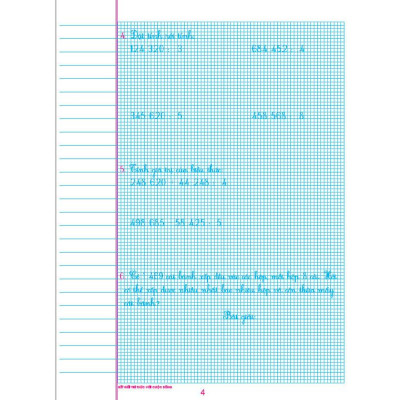 4. Đặt tính rồi tính:
124 320 : 3 684 452 : 4
345 620 : 5 458 568 : 8
5. Tính giá trị của biểu thức:
248 620 - 44 248 : 4
498 685 - 58 425 : 5
6. Có 1 489 cái bánh xếp đều vào các hộp, mỗi hộp 8 cái. Hỏi
có thể xếp được nhiều nhất bao nhiêu hộp và còn thừa mấy
cái bánh?
Bài giải:
4